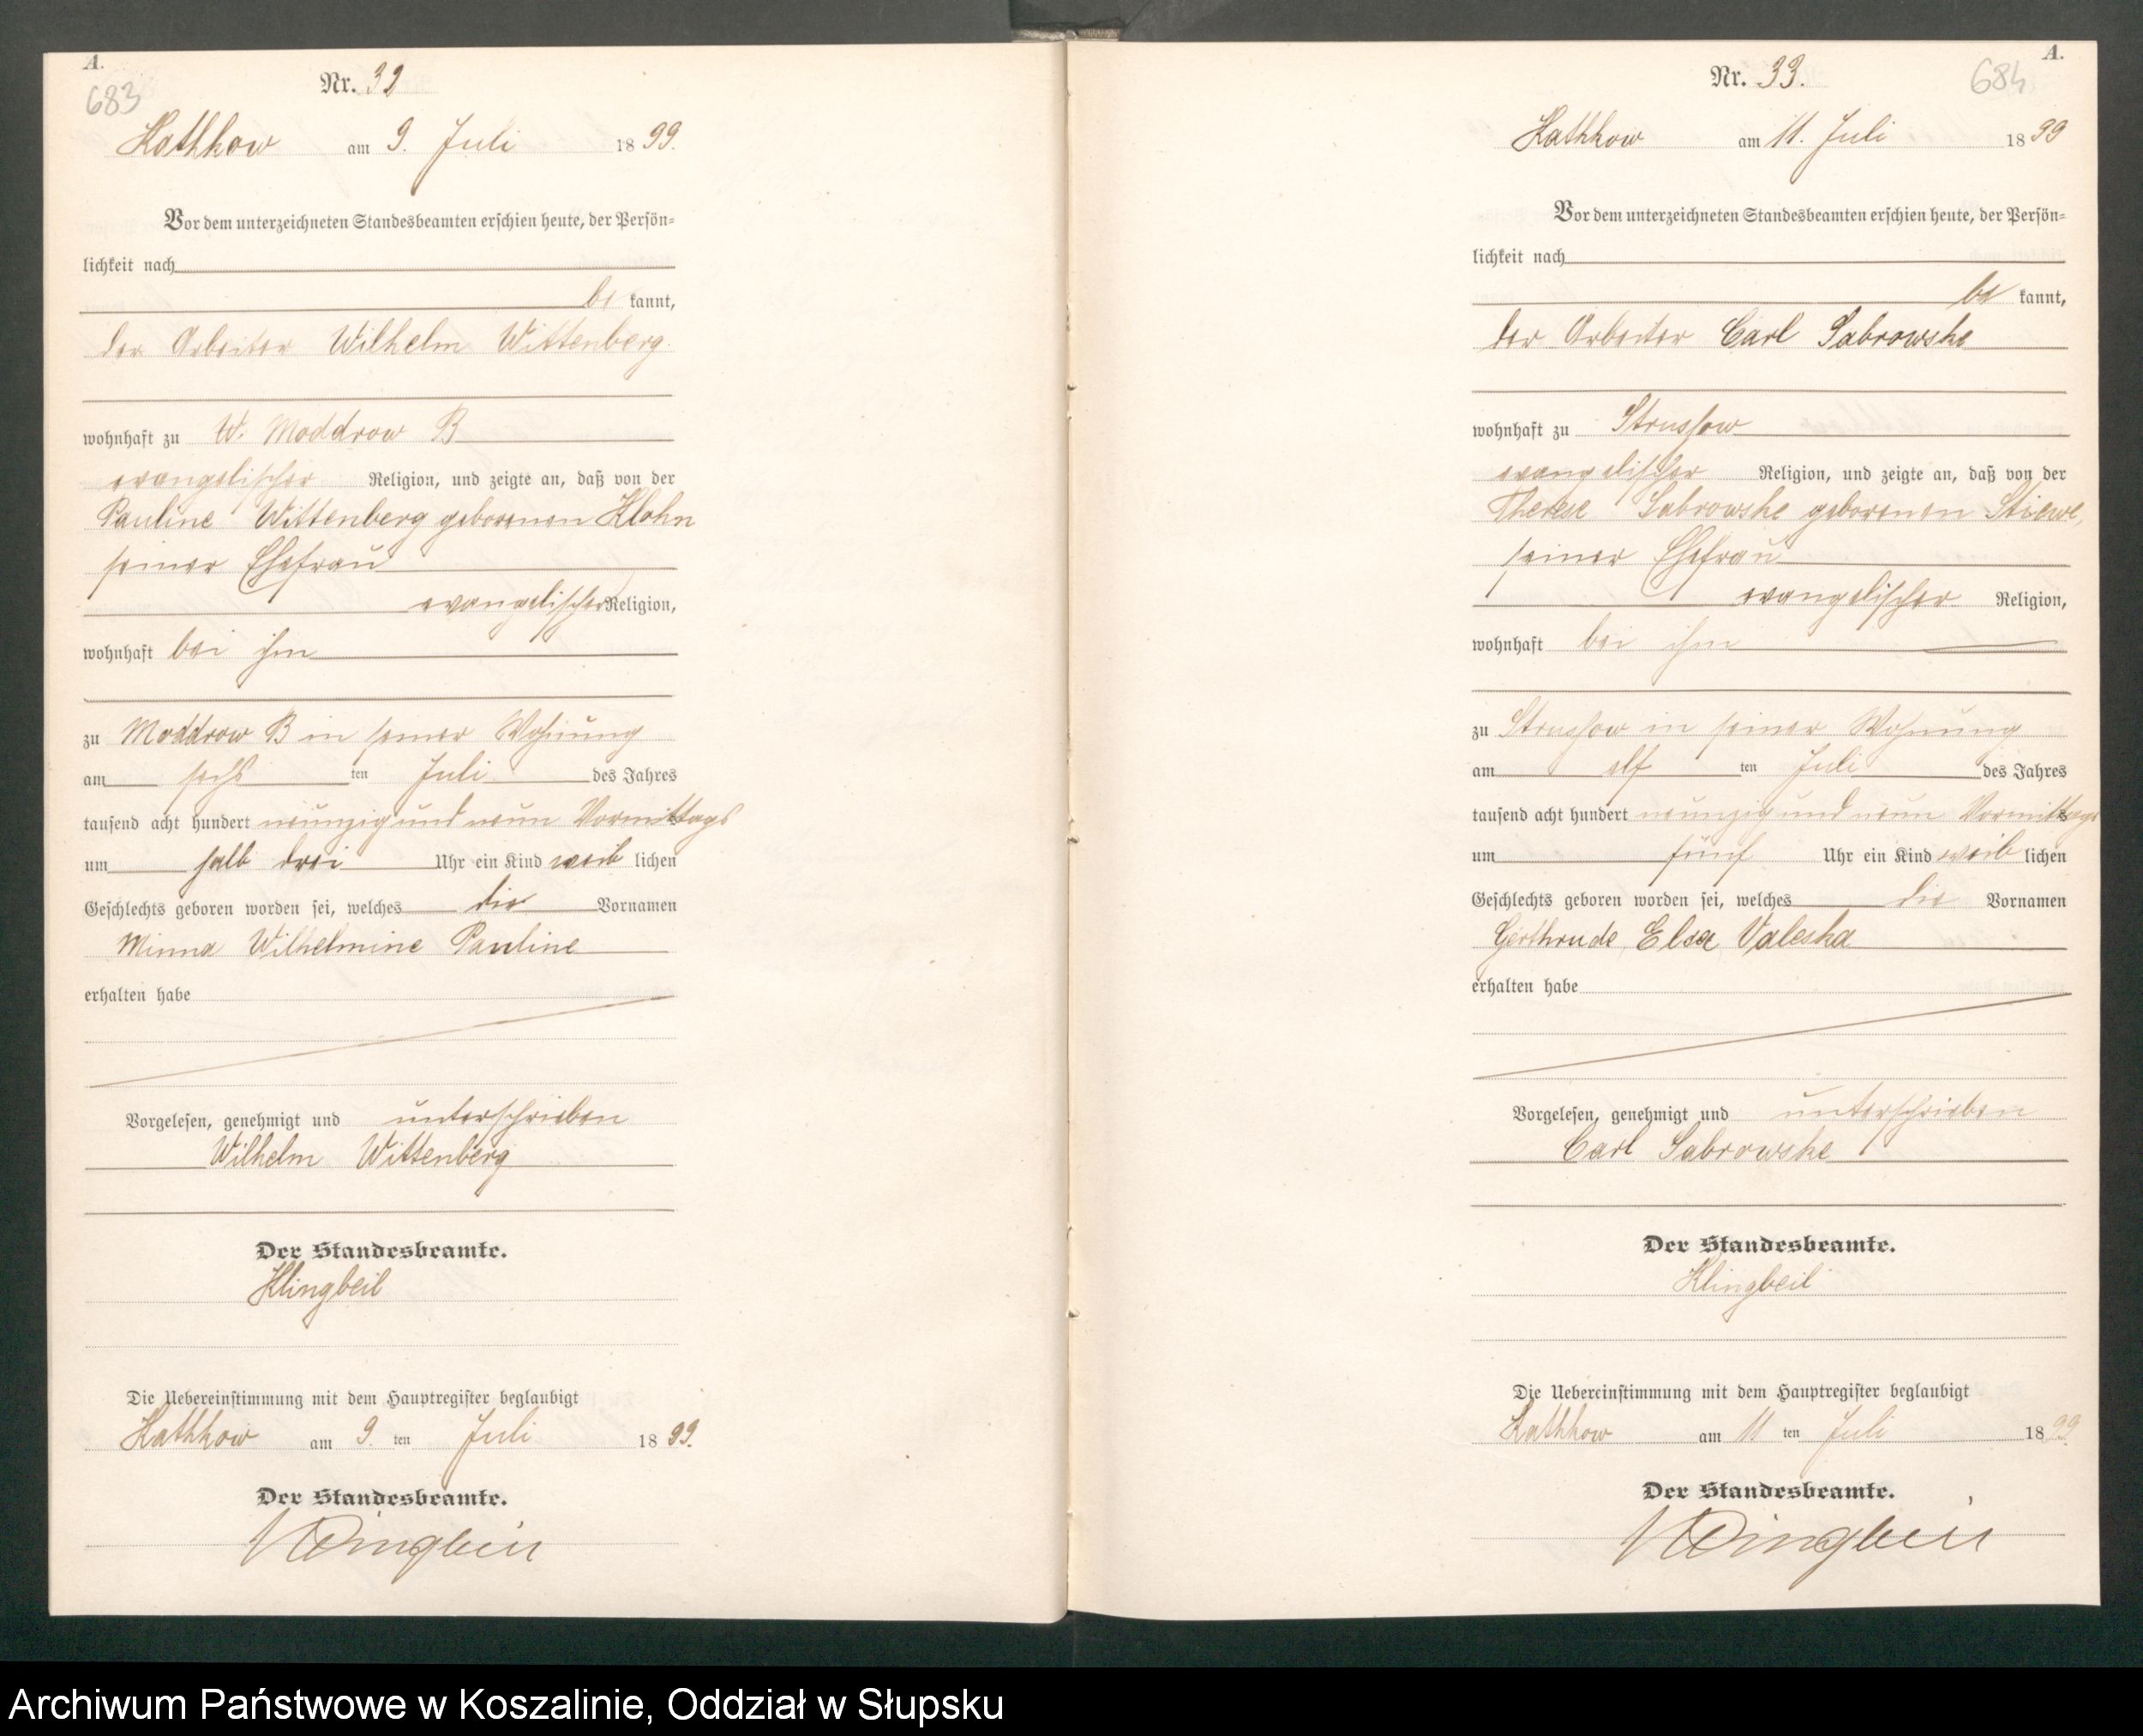 A.
683
Nr. 32
Kathkow am 9. Juli 1899.
Vor dem unterzeichneten Standesbeamten erschien heute, der Persön-
lichkeit nach
be kannt,
der Arbeiter Wilhelm Wittenberg
wohnhaft zu W. Moddrow B
evangelischer Religion, und zeigte an, daß von der
Pauline Wittenberg geborenen Klohn
seiner Ehefrau
evangelischer Religion,
wohnhaft bei ihm
zu Moddrow B in seiner Wohnung
am sechs ten Juli des Jahres
tausend acht hundert neunzig und neun Vormittags
um halb drei Uhr ein Kind weib lichen
Geschlechts geboren worden sei, welches die Vornamen
Minna Wilhelmine Pauline
erhalten habe
Vorgelesen, genehmigt und unterschrieben
Wilhelm Wittenberg
Der Standesbeamte.
Klingbeil
Die Uebereinstimmung mit dem Hauptregister beglaubigt
Kathkow am 9. ten Juli 1899.
Der Standesbeamte.
Klingbeil
A.
684
Nr. 33.
Kathkow am 11. Juli 1899
Vor dem unterzeichneten Standesbeamten erschien heute, der Persön-
lichkeit nach
be kannt,
der Arbeiter Carl Sabrowske
wohnhaft zu Strussow
evangelischer Religion, und zeigte an, daß von der
Therese Sabrowske geborenen Stiewe,
seiner Ehefrau
evangelischer Religion,
wohnhaft bei ihm
zu Strussow in seiner Wohnung
am elf ten Juli des Jahres
tausend acht hundert neunzig und neun Vormittags
um fünf Uhr ein Kind weib lichen
Geschlechts geboren worden sei, welches die Vornamen
Gerthrude Elsa Valeska
erhalten habe
Vorgelesen, genehmigt und unterschrieben
Carl Sabrowske
Der Standesbeamte.
Klingbeil
Die Uebereinstimmung mit dem Hauptregister beglaubigt
Kathkow am 11 ten Juli 1899.
Der Standesbeamte.
Klingbeil
Archiwum Państwowe w Koszalinie, Oddział w Słupsku